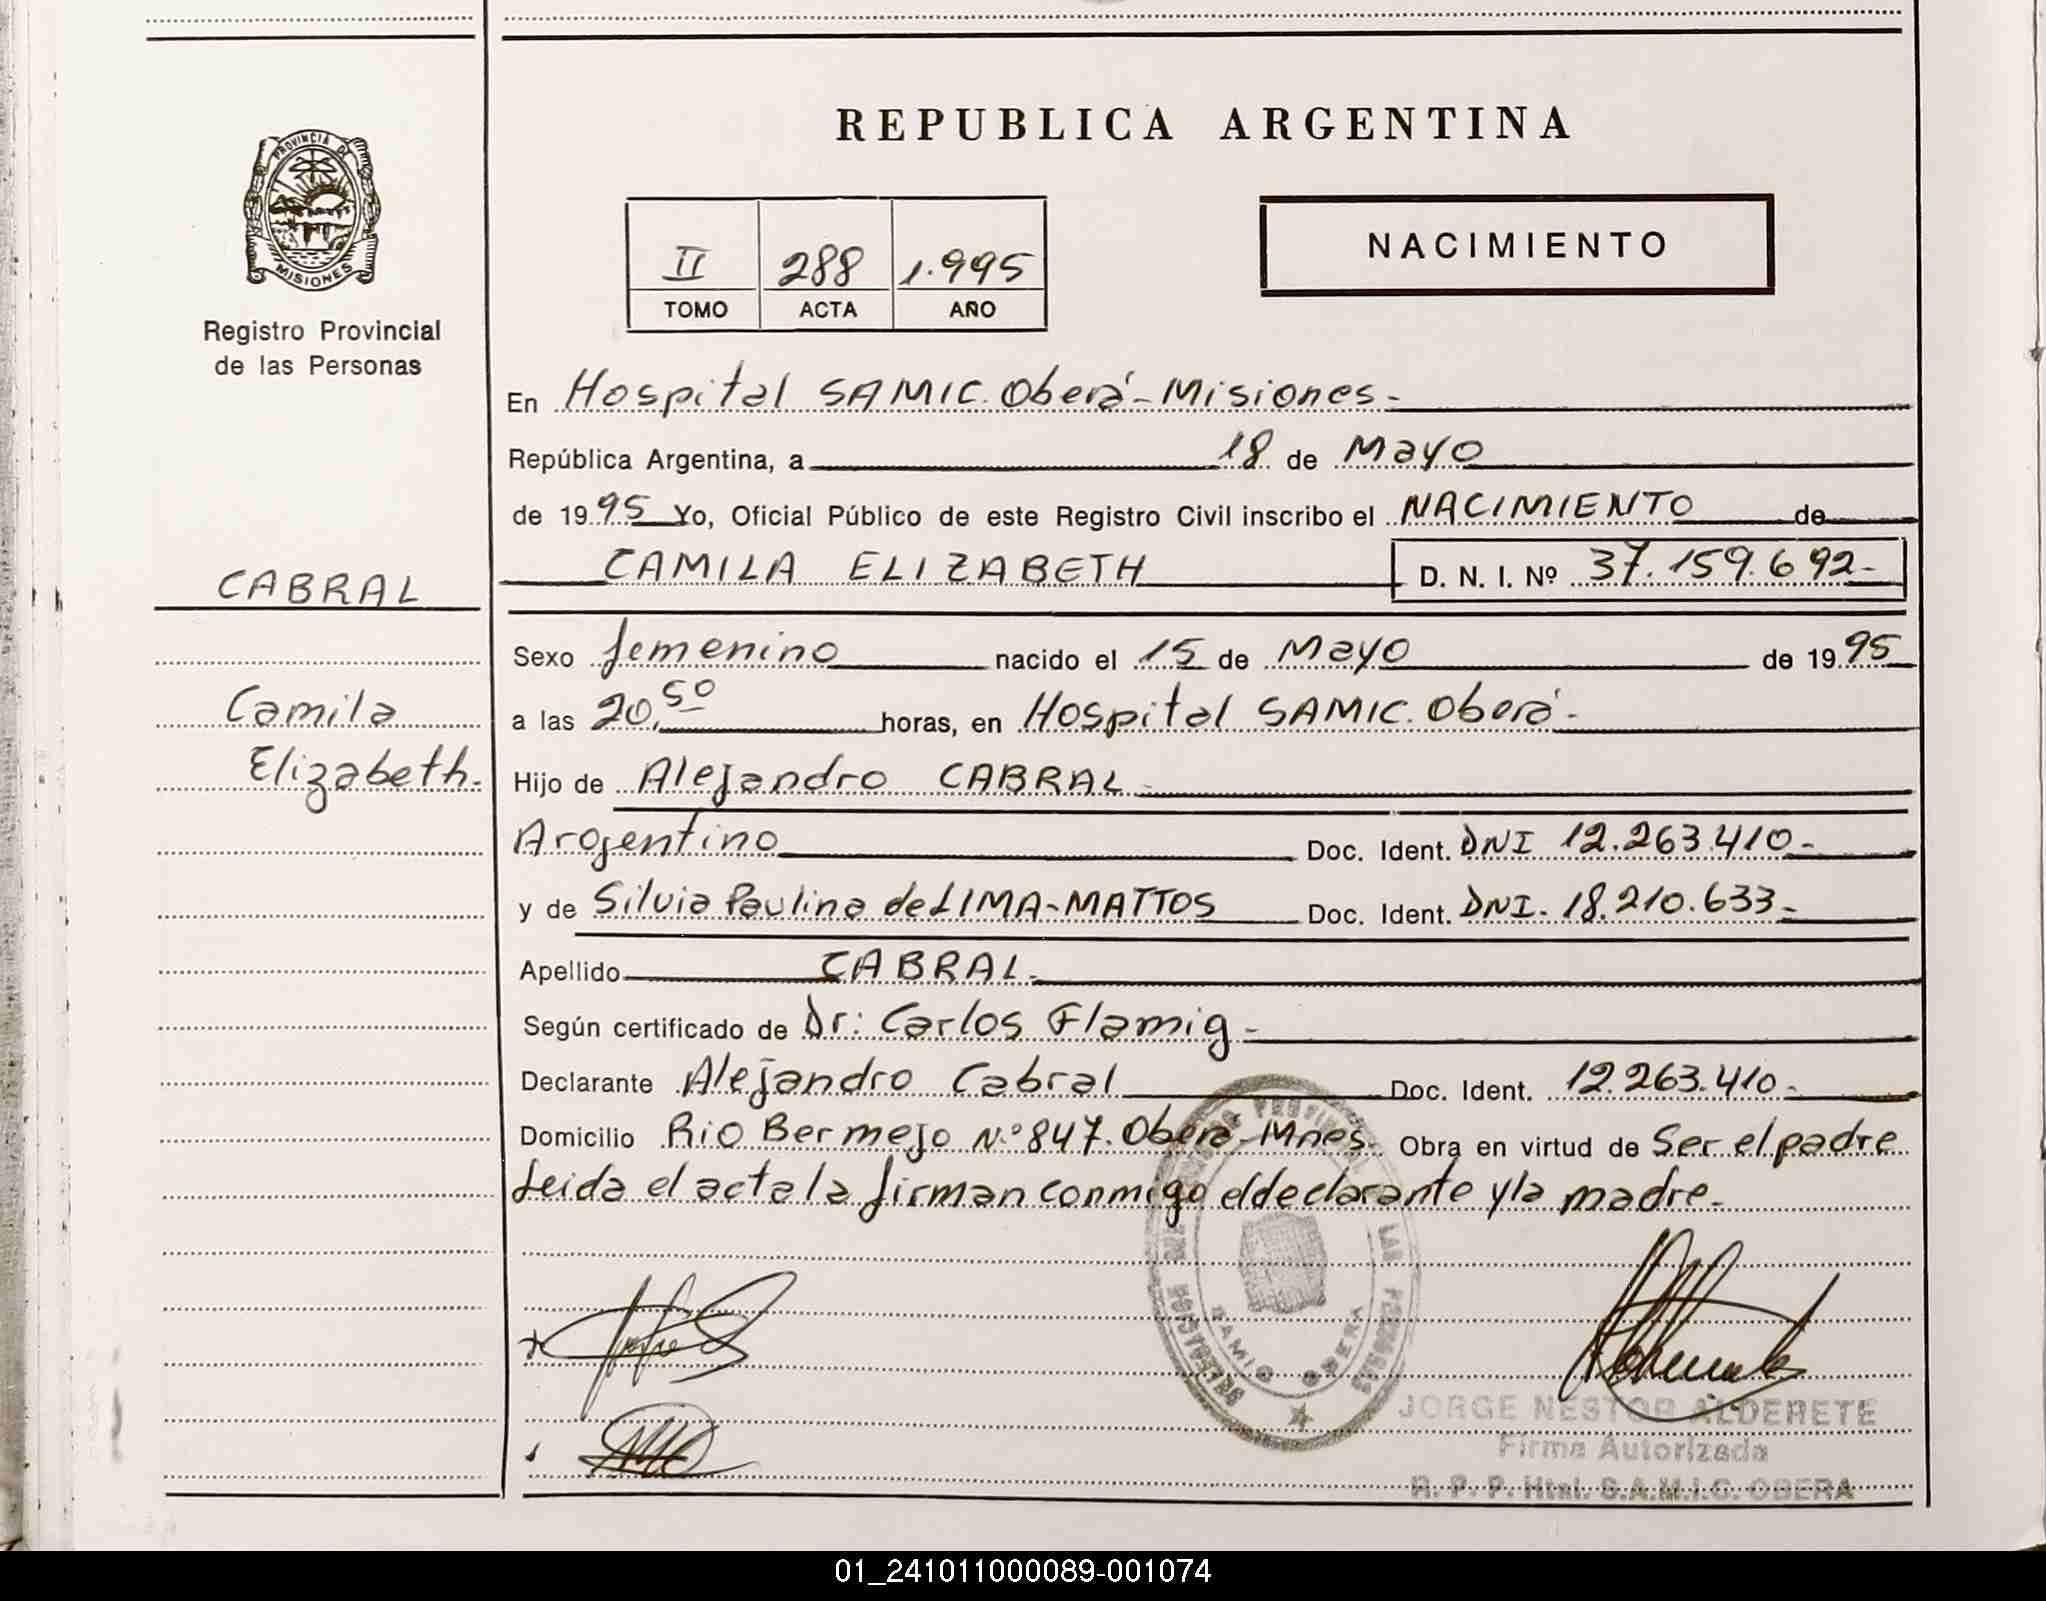 PROVINCIA DE
MISIONES
Registro Provincial
de las Personas
CABRAL
Camila
Elizabeth.
REPUBLICA ARGENTINA
II 288 1.995
TOMO ACTA AÑO
NACIMIENTO
En Hospital SAMIC. Oberá - Misiones -
República Argentina, a 18 de Mayo
de 1995 Yo, Oficial Público de este Registro Civil inscribo el NACIMIENTO de
CAMILA ELIZABETH D. N. I. Nº 37.159.692-
Sexo femenino nacido el 15 de Mayo de 1995
a las 20,50 horas, en Hospital SAMIC. Oberá -
Hijo de Alejandro CABRAL -
Argentino Doc. Ident. DNI 12.263.410-
y de Silvia Paulina de LIMA-MATTOS Doc. Ident. DNI. 18.210.633-
Apellido CABRAL -
Según certificado de Dr: Carlos Flamig -
Declarante Alejandro Cabral Doc. Ident. 12.263.410-
Domicilio Rio Bermejo N.º 847. Oberá - Mnes. Obra en virtud de Ser el padre
Leida el acta la firman conmigo el declarante y la madre -
SAMIC OBERA
JORGE NESTOR ALDERETE
Firma Autorizada
R. P. P. Htal. S.A.M.I.C. OBERA
01_241011000089-001074